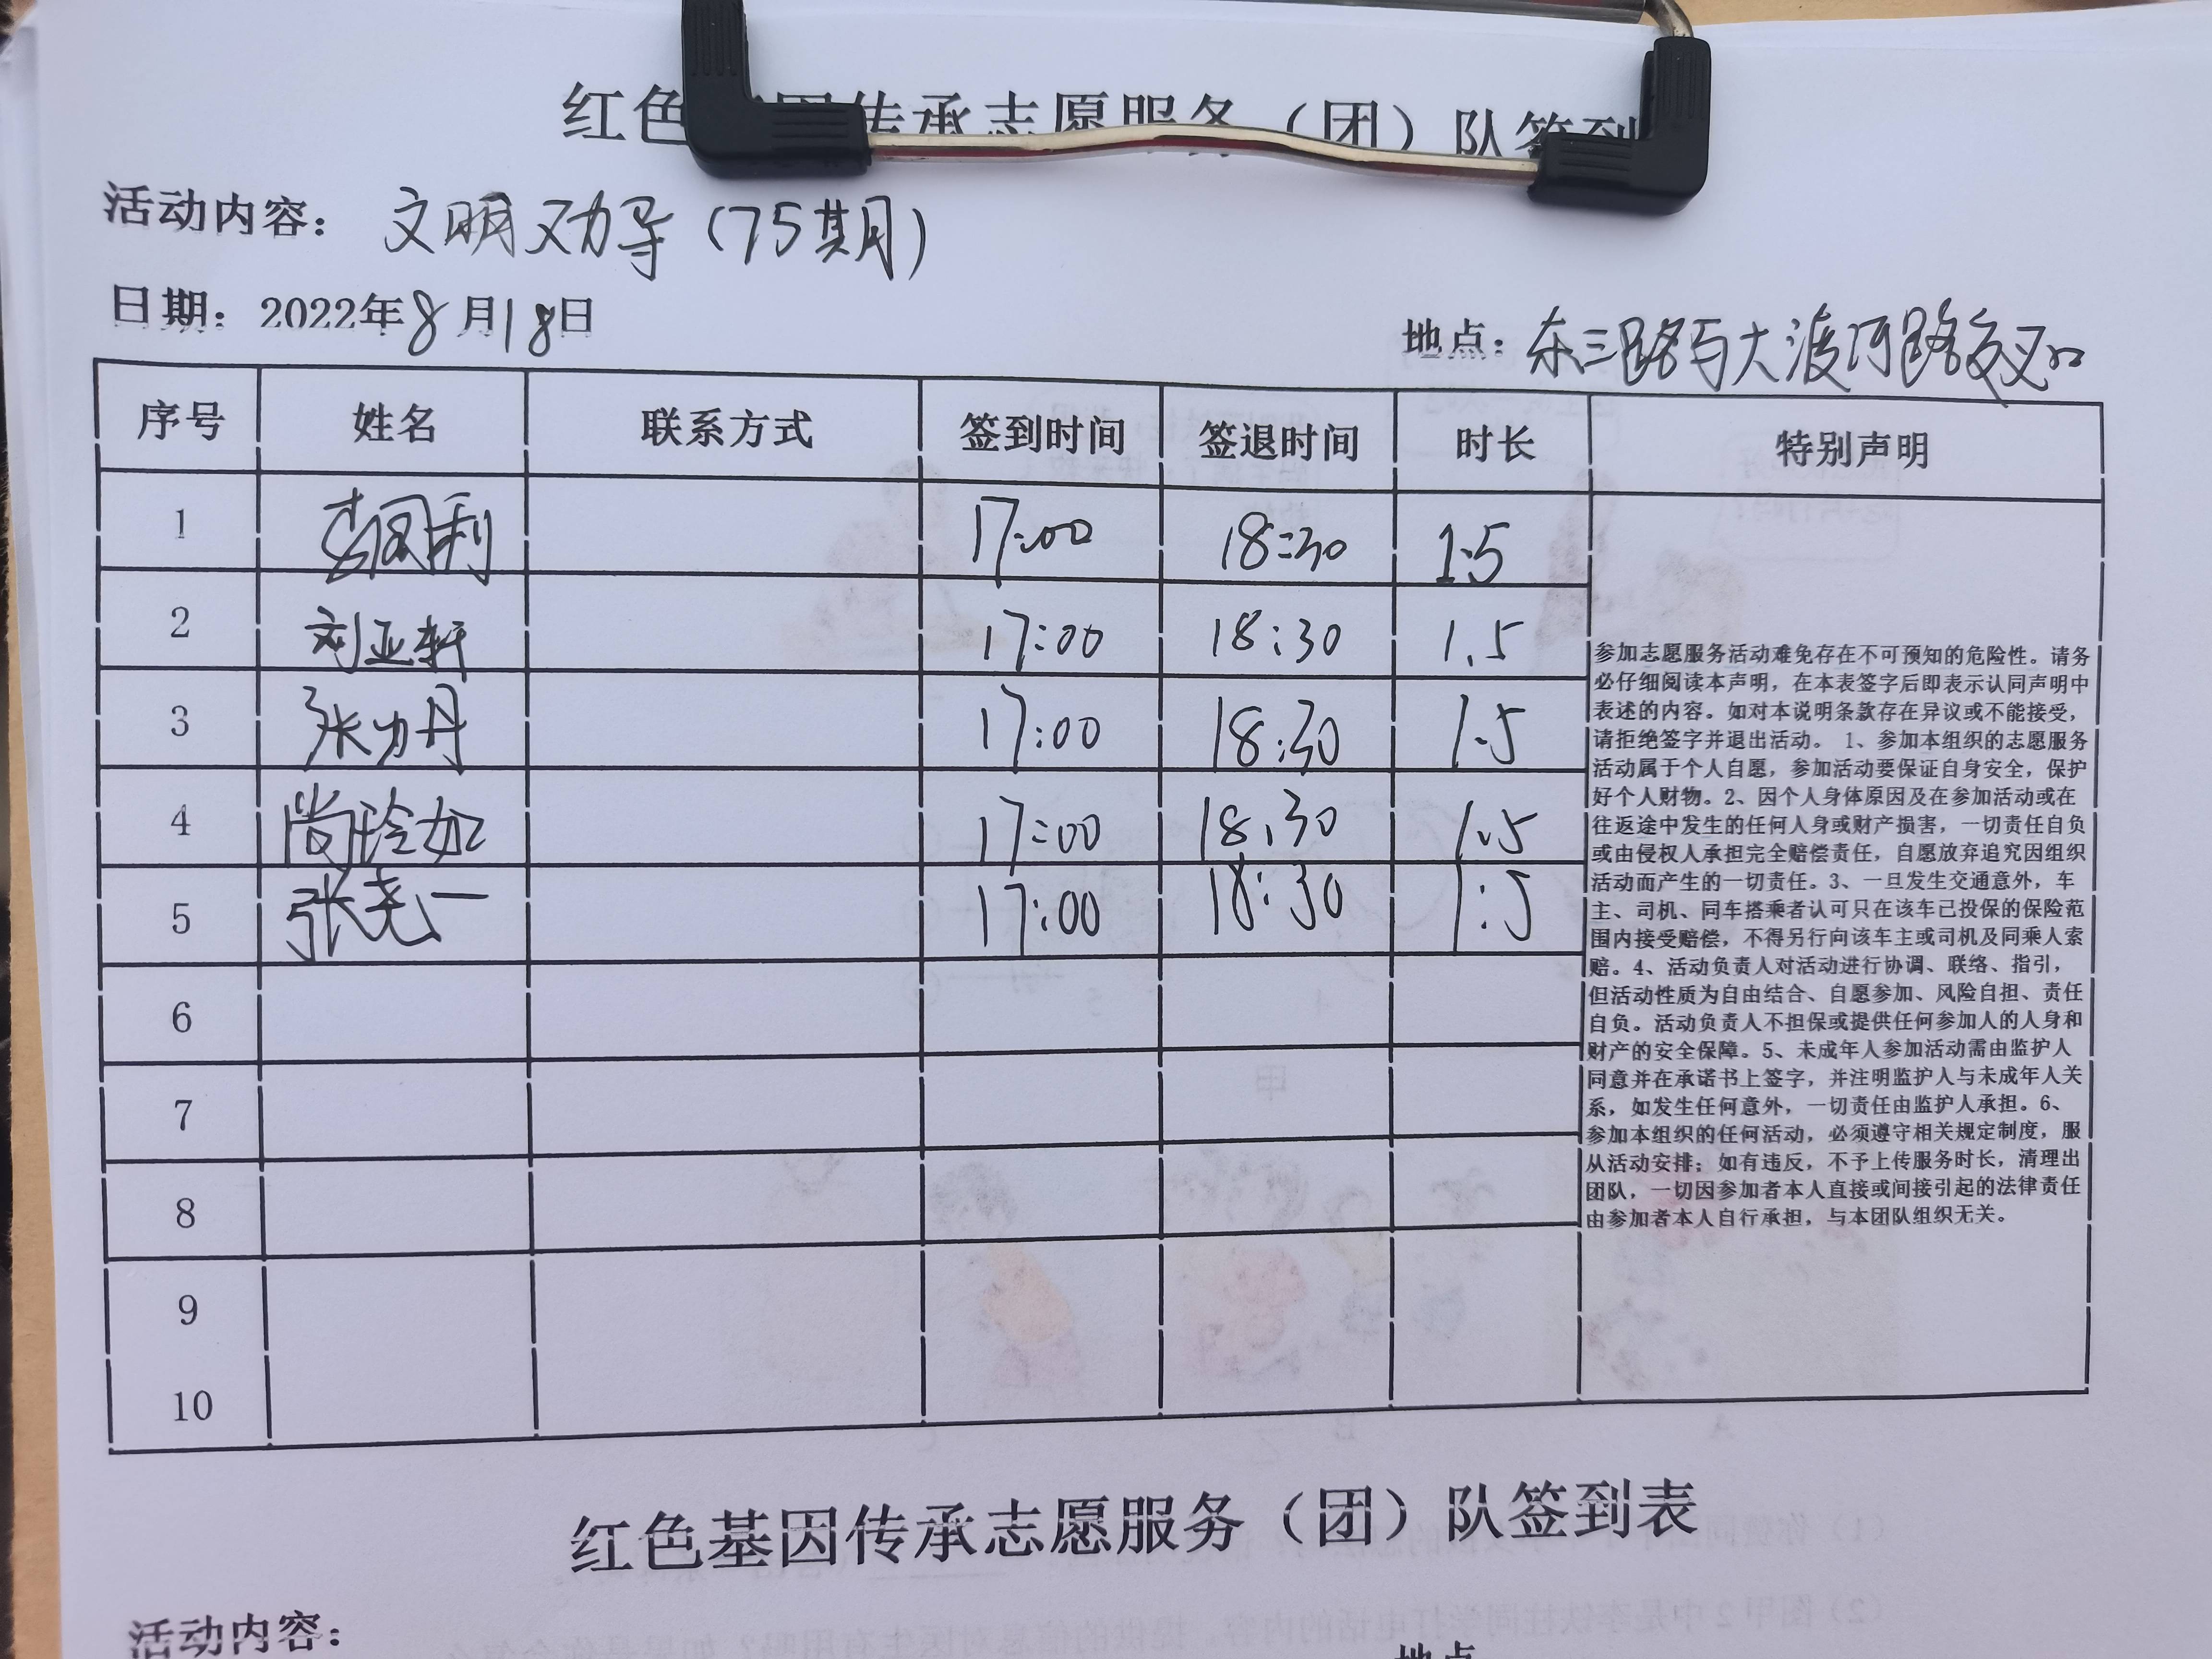 红色基因传承志愿服务（团）队签到
活动内容：文明劝导（75期）
日期：2022年8月18日
地点：东三路与大渡河路交叉口
序号 姓名 联系方式 签到时间 签退时间 时长 特别声明
1 17:00 18:30 1.5
2 刘亚轩 17:00 18:30 1.5
3 张力丹 17:00 18:30 1.5
4 尚玲如 17:00 18.30 1.5
5 张尧一 17:00 18:30 1:5
6
7
8
9
10
参加志愿服务活动难免存在不可预知的危险性。请务
必仔细阅读本声明，在本表签字后即表示认同声明中
表述的内容。如对本说明条款存在异议或不能接受，
请拒绝签字并退出活动。 1、参加本组织的志愿服务
活动属于个人自愿，参加活动要保证自身安全，保护
好个人财物。2、因个人身体原因及在参加活动或在
往返途中发生的任何人身或财产损害，一切责任自负
或由侵权人承担完全赔偿责任，自愿放弃追究因组织
活动而产生的一切责任。3、一旦发生交通意外，车
主、司机、同车搭乘者认可只在该车已投保的保险范
围内接受赔偿，不得另行向该车主或司机及同乘人索
赔。4、活动负责人对活动进行协调、联络、指引，
但活动性质为自由结合、自愿参加、风险自担、责任
自负。活动负责人不担保或提供任何参加人的人身和
财产的安全保障。5、未成年人参加活动需由监护人
同意并在承诺书上签字，并注明监护人与未成年人关
系，如发生任何意外，一切责任由监护人承担。6、
参加本组织的任何活动，必须遵守相关规定制度，服
从活动安排；如有违反，不予上传服务时长，清理出
团队，一切因参加者本人直接或间接引起的法律责任
由参加者本人自行承担，与本团队组织无关。
红色基因传承志愿服务（团）队签到表
活动内容：
地点